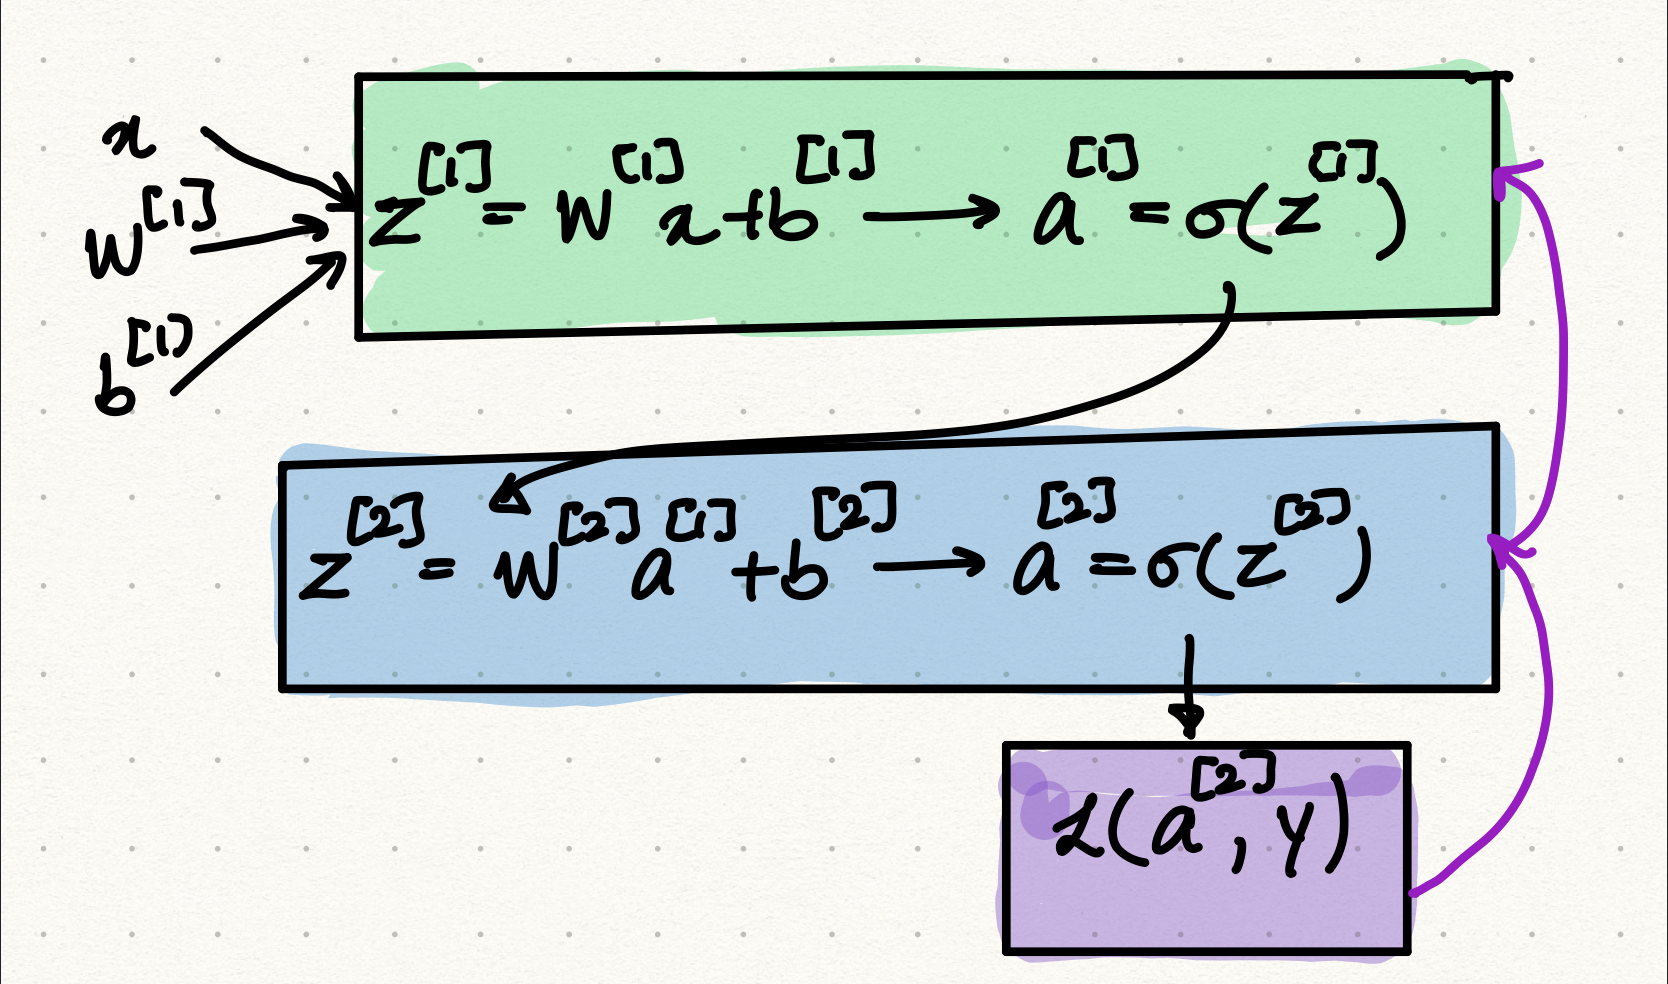 x
W^[1]
b^[1]
z^[1] = W^[1] x + b^[1] → a^[1] = σ(z^[1])
z^[2] = W^[2] a^[1] + b^[2] → a^[2] = σ(z^[2])
L(a^[2], y)